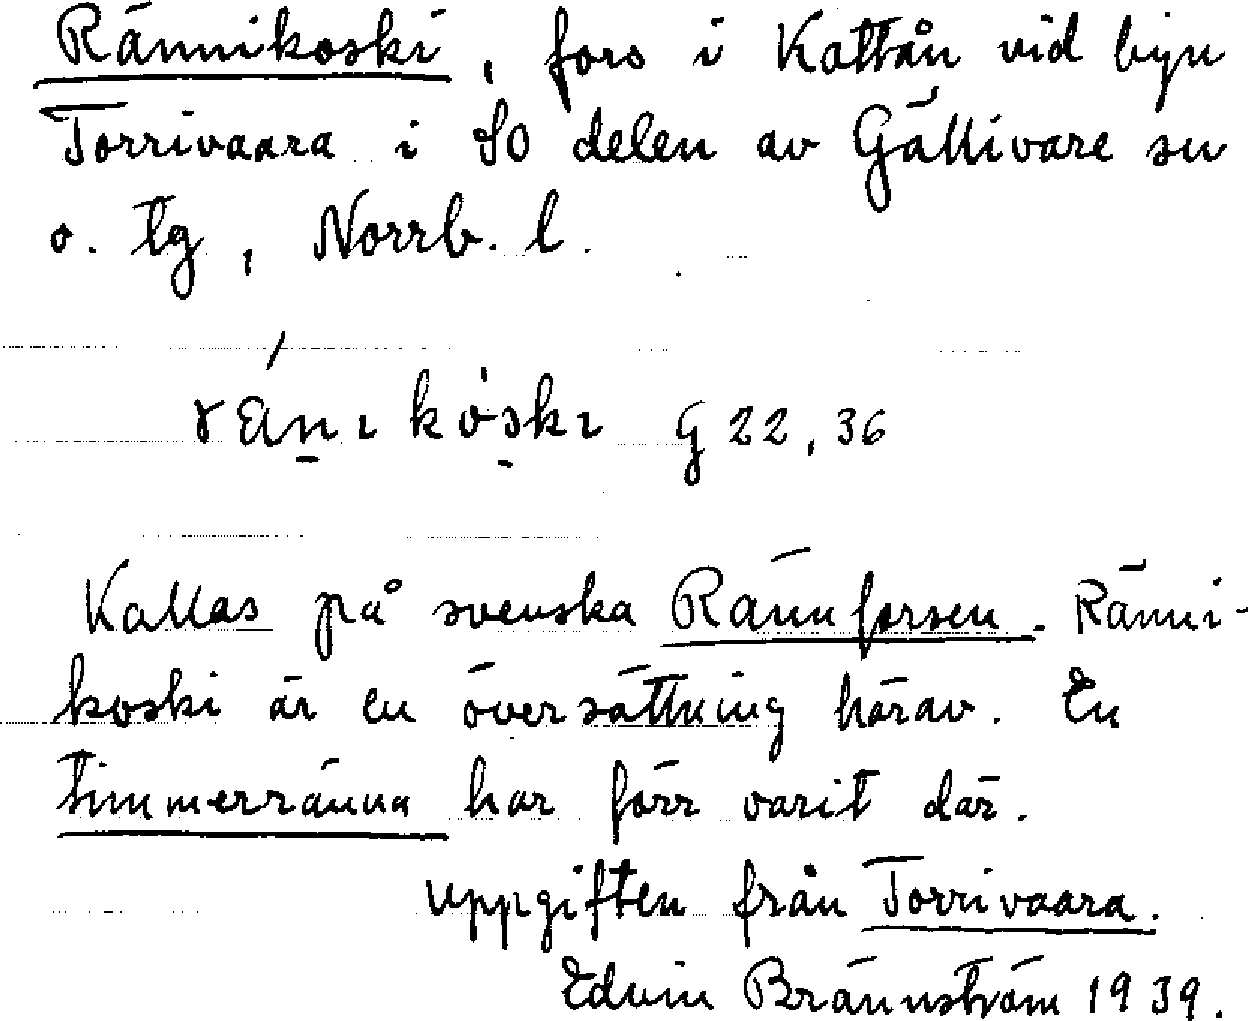 Rännikoski, fors i Kattån vid byn
Torrivaara i SO delen av Gällivare sn
o. tg, Norrb. l.
ränıkòskı G 22, 36
Kallas på svenska Rännforsen. Ränni-
koski är en översättning härav. En
timmerränna har förr varit där.
uppgiften från Torrivaara.
Edvin Brännström 1939.